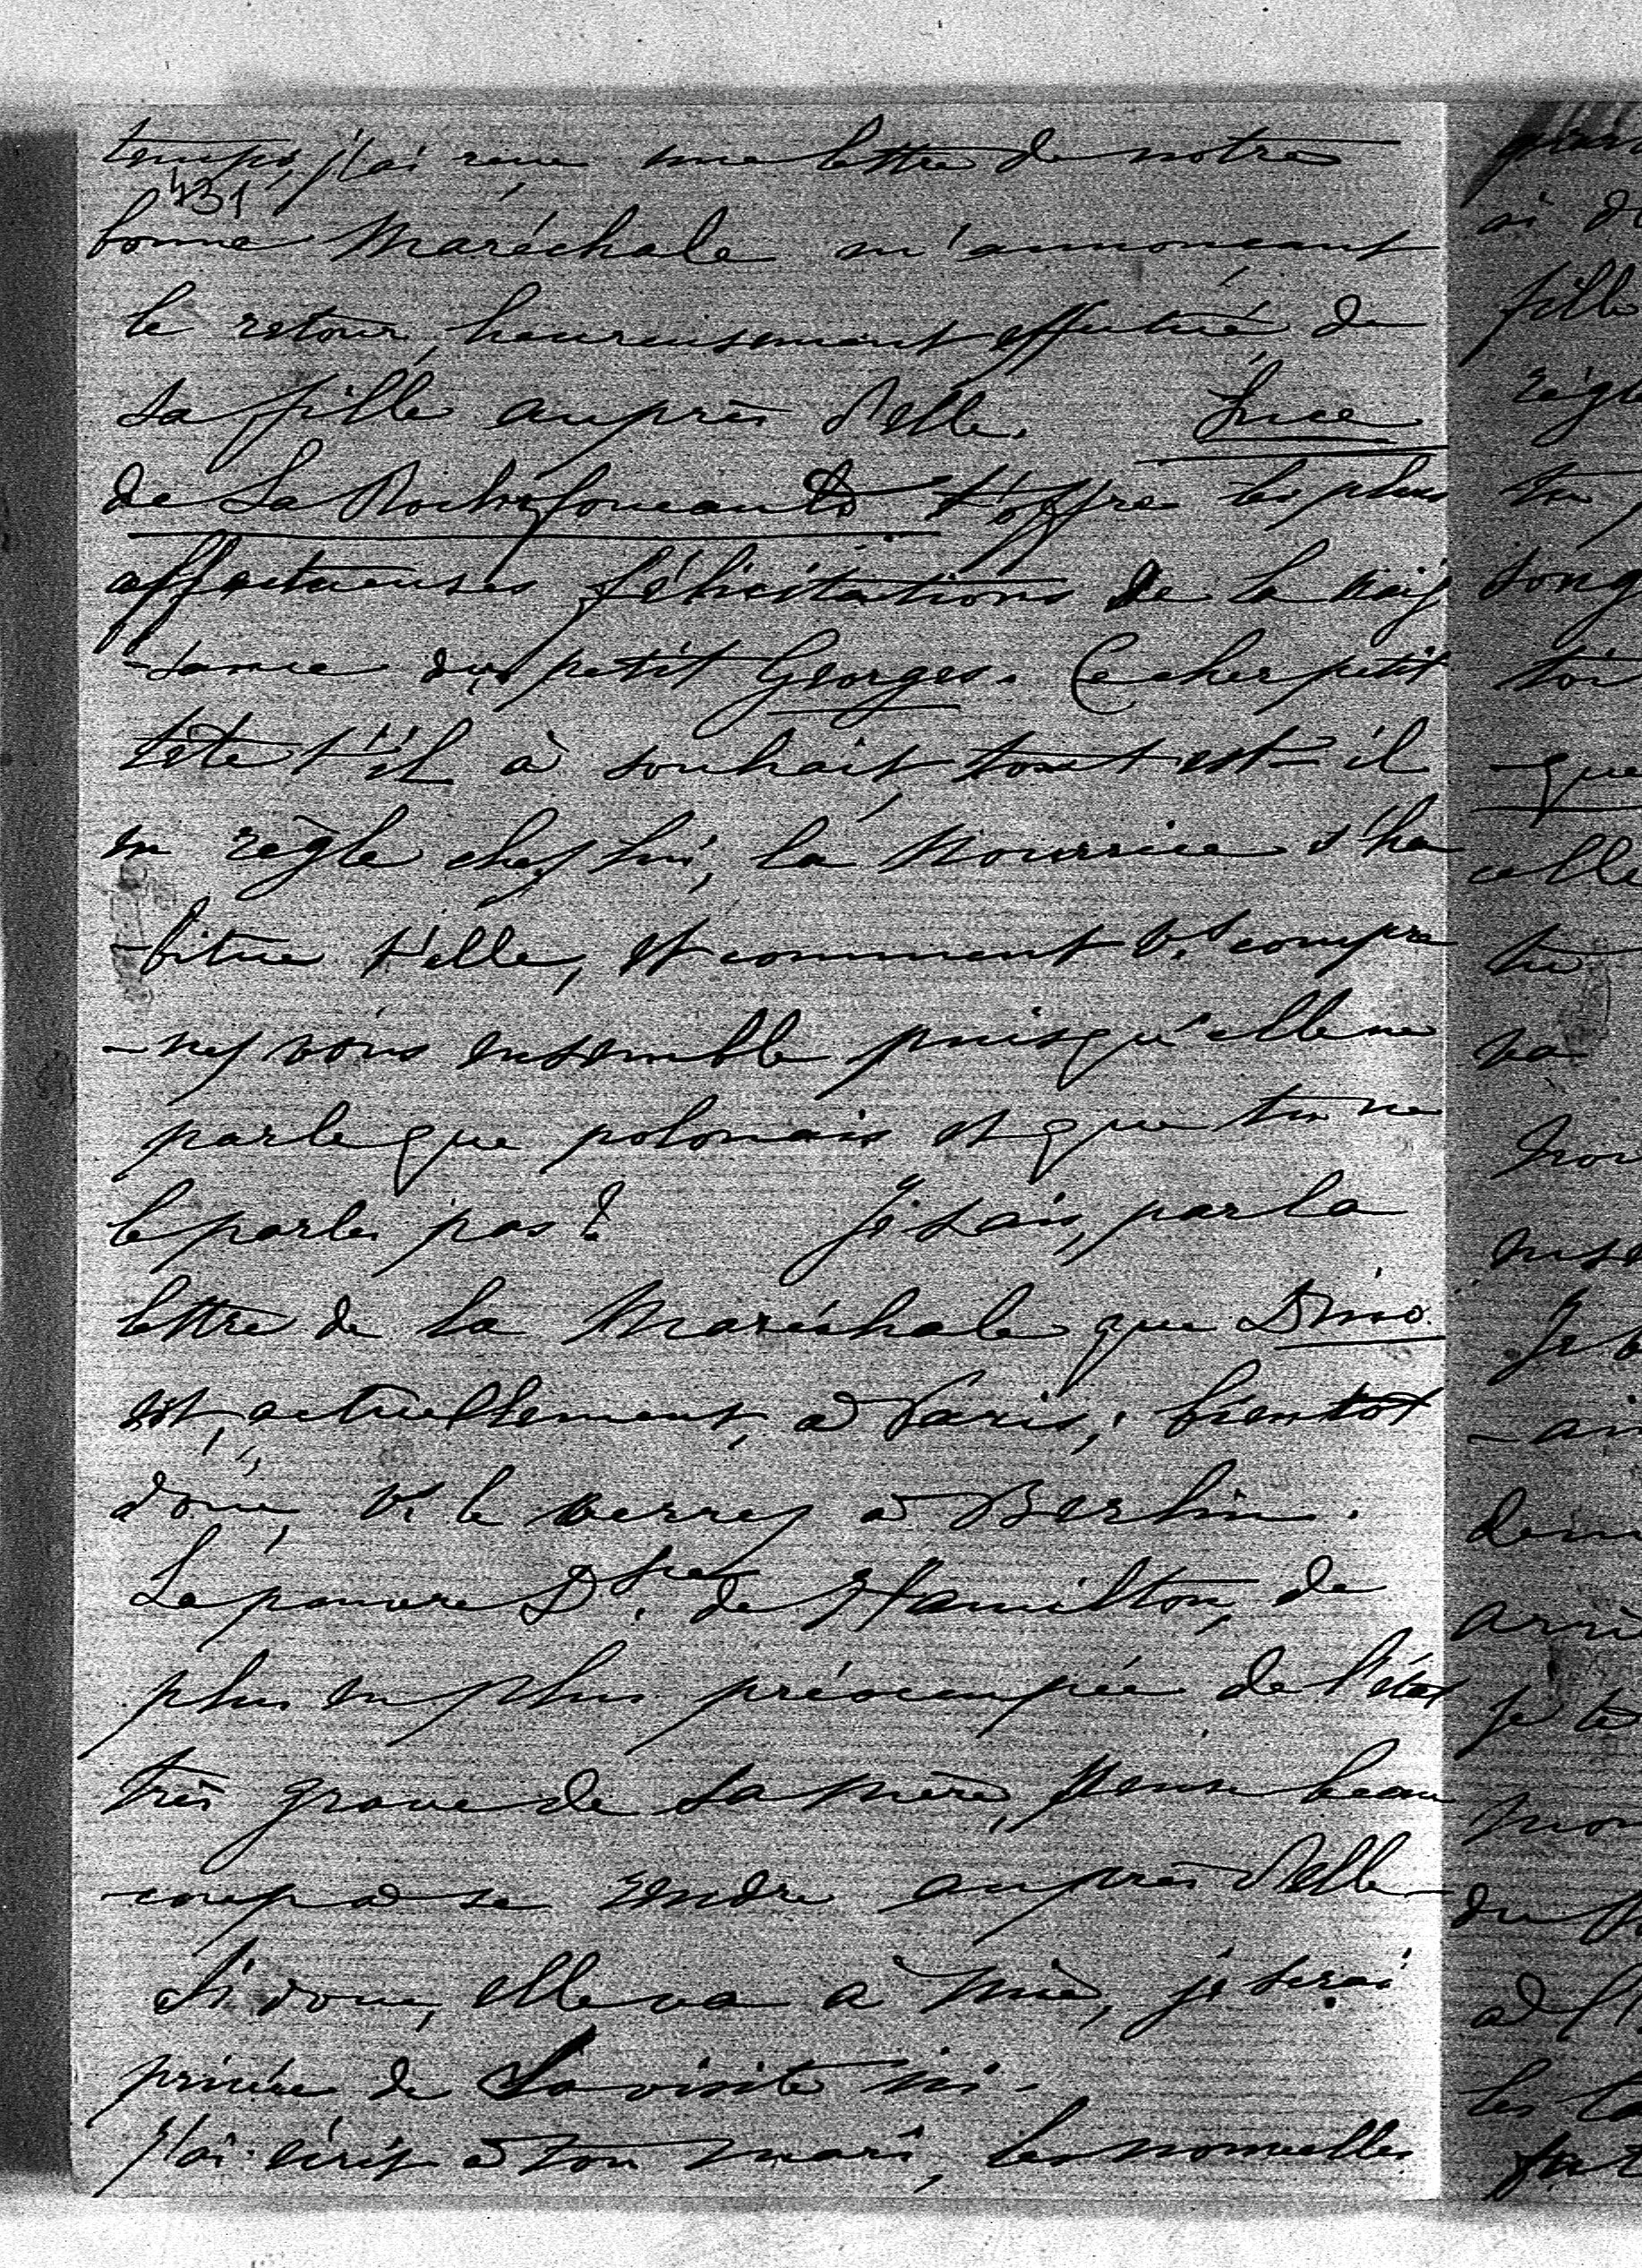 temps, j'ai reçu une lettre de notre
431
bonne Maréchale m'annonçant
le retour, heureusement effectué de
sa fille auprès d'elle. Luce
de La Rochefoucauld t'offre les plus
affectueuses félicitations de la nais
-sance du petit Georges. Ce cher petit
tète t'il à souhait tout est-il
en règle chez lui, la Nourrice s'ha
-bitue t'elle, et comment vs compre
-nez vous ensemble puisqu'elle ne
parle que polonais et que tu ne
le parles pas? Je sais, par la
lettre de la Maréchale que Dino
est, actuellement, à Paris; bientôt
donc, vs le verrez à Berlin.
La pauvre Dsse de Hamilton, de
plus en plus préoccupée de l'état
très grave de sa mère, pense beau
-coup à se rendre auprès d'elle
Si donc, elle va à Nice, je serai
privée de sa visite ici.
J'ai écrit à ton mari, les nouvelles